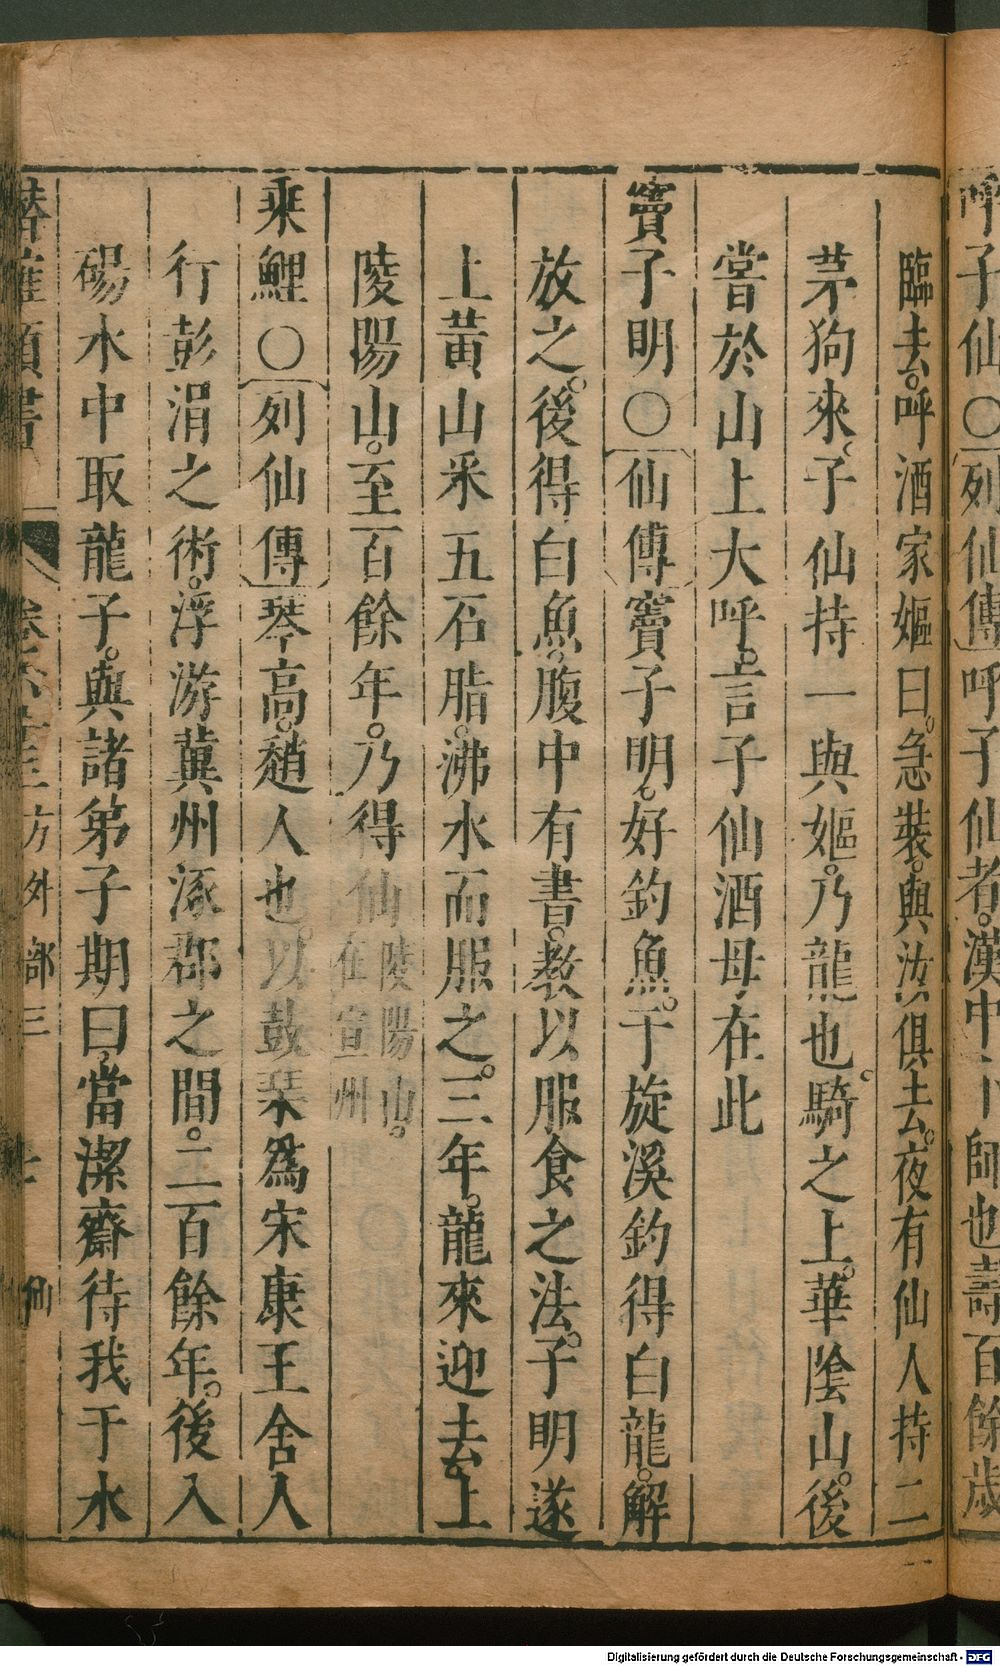 呼子仙○列仙傳呼子仙者。漢中卜師也壽百餘歲
臨去。呼酒家嫗曰。急裝。與汝俱去。夜有仙人持二
茅狗來。子仙持一與嫗。乃龍也。騎之上。華陰山。後
嘗於山上大呼。言子仙酒母在此
竇子明○仙傳竇子明。好釣魚。于旋溪釣得白龍。解
放之。後得白魚。腹中有書。教以服食之法。子明遂
上黃山采五石脂。沸水而服之。三年。龍來迎去。上
陵陽山。至百餘年。乃得仙陵陽山。在宣州
乘鯉○列仙傳琴高。趙人也。以鼓琴為宋康王舍人
行彭涓之術。浮游冀州涿郡之間。二百餘年。後入
碭水中取龍子。與諸弟子期曰。當潔齋待我于水
類書 方外部三 仙
Digitalisierung gefördert durch die Deutsche Forschungsgemeinschaft - DFG